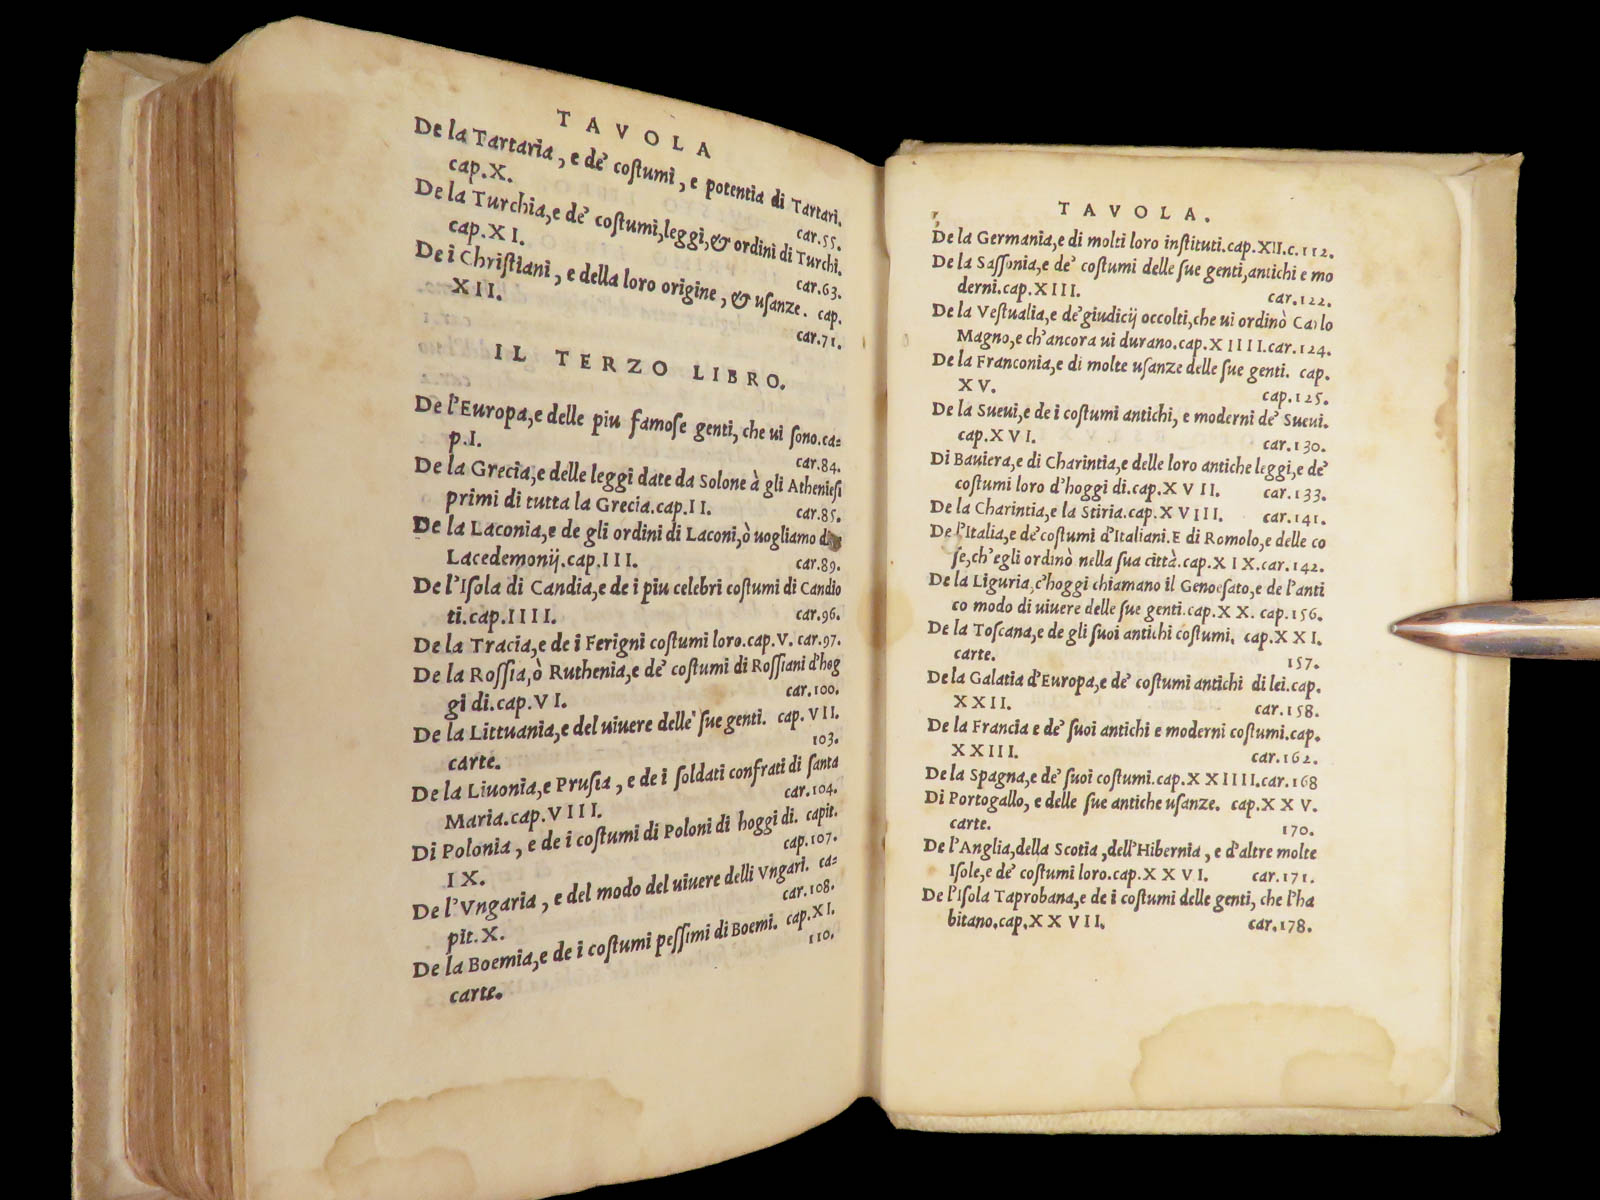 TAVOLA
De la Tartaria, e de' coſtumi, e potentia di Tartari.
cap.X. car.55.
De la Turchia,e de' coſtumi,leggi,& ordini di Turchi.
cap.XI. car.63.
De i Chriſtiani, e della loro origine, & uſanze. cap.
XII. car.71.
IL TERZO LIBRO.
De l'Europa,e delle piu famoſe genti, che ui ſono.ca=
p.I. car.84.
De la Grecia,e delle leggi date da Solone à gli Athenieſi
primi di tutta la Grecia.cap.II. car.85.
De la Laconia,e de gli ordini di Laconi,ò uogliamo
Lacedemonij.cap.III. car.89.
De l'Iſola di Candia,e de i piu celebri coſtumi di Candio
ti.cap.IIII. car.96.
De la Tracia,e de i Ferigni coſtumi loro.cap.V. car.97.
De la Roſſia,ò Ruthenia,e de' coſtumi di Roſſiani d'hog
gi di.cap.VI. car.100.
De la Littuania,e del uiuere delle ſue genti. cap.VII.
carte. 103.
De la Liuonia,e Pruſia, e de i ſoldati confrati di ſanta
Maria.cap.VIII. car.104.
Di Polonia, e de i coſtumi di Poloni di hoggi di. capit.
IX. cap.107.
De l'Vngaria, e del modo del uiuere delli Vngari. ca=
pit.X. car.108.
De la Boemia,e de i coſtumi peſſimi di Boemi. cap.XI.
carte. 110.
TAVOLA.
De la Germania,e di molti loro inſtituti.cap.XII.c.112.
De la Saſſonia,e de' coſtumi delle ſue genti,antichi e mo
derni.cap.XIII. car.122.
De la Veſtualia,e de'giudicij occolti,che ui ordinò Carlo
Magno,e ch'ancora ui durano.cap.XIIII.car.124.
De la Franconia,e di molte uſanze delle ſue genti. cap.
XV. cap.125.
De la Sueui,e de i coſtumi antichi, e moderni de' Sueui.
cap.XVI. car.130.
Di Bauiera,e di Charintia,e delle loro antiche leggi,e de'
coſtumi loro d'hoggi di.cap.XVII. car.133.
De la Charintia,e la Stiria.cap.XVIII. car.141.
De l'Italia,e de' coſtumi d'Italiani.E di Romolo,e delle co
ſe,ch'egli ordinò nella ſua città.cap.XIX.car.142.
De la Liguria,c'hoggi chiamano il Genoeſato,e de l'anti
co modo di uiuere delle ſue genti.cap.XX. cap.156.
De la Toſcana,e de gli ſuoi antichi coſtumi. cap.XXI.
carte. 157.
De la Galatia d'Europa,e de' coſtumi antichi di lei.cap.
XXII. car.158.
De la Francia e de' ſuoi antichi e moderni coſtumi.cap.
XXIII. car.162.
De la Spagna,e de' ſuoi coſtumi.cap.XXIIII.car.168
Di Portogallo, e delle ſue antiche uſanze. cap.XXV.
carte. 170.
De l'Anglia,della Scotia,dell'Hibernia, e d'altre molte
Iſole,e de' coſtumi loro.cap.XXVI. car.171.
De l'Iſola Taprobana,e de i coſtumi delle genti, che l'ha
bitano.cap.XXVII. car.178.